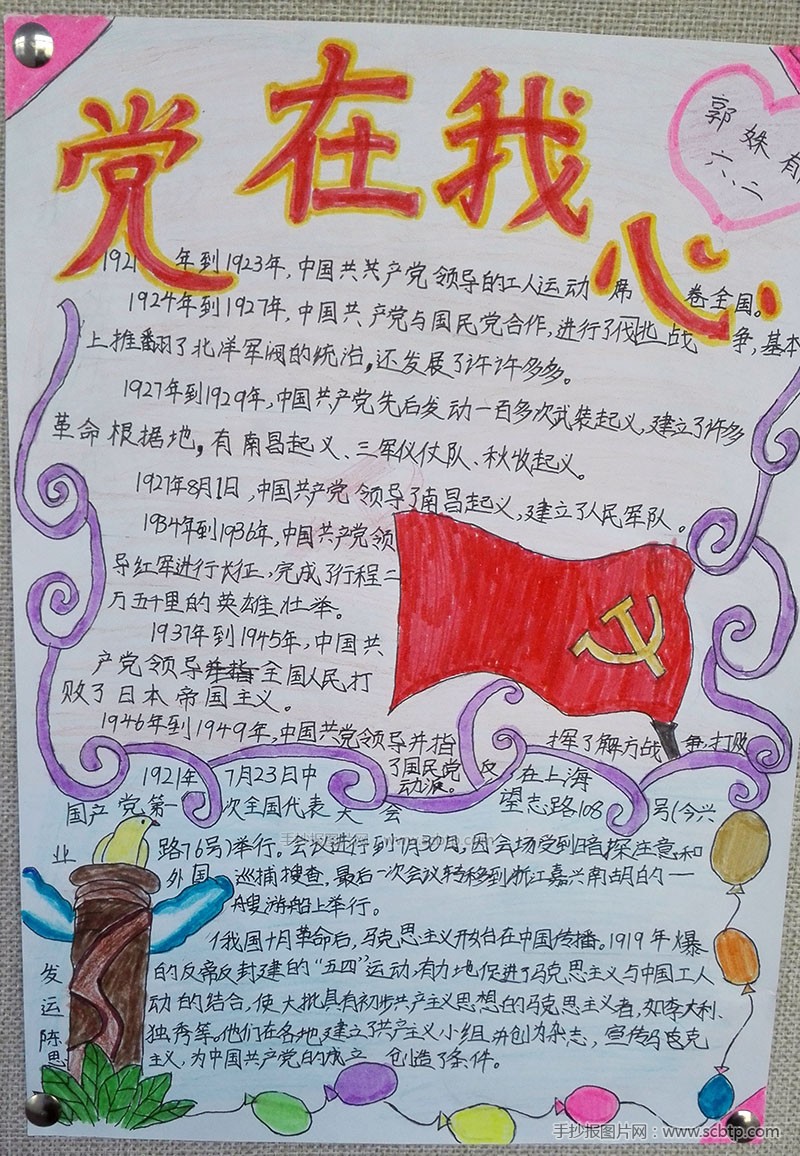 党在我心
郭姝
六、二
1921 年到1923年，中国共共产党领导的工人运动 席 卷全国。
1924年到1927年，中国共产党与国民党合作，进行了伐北战 争，基本
上推翻了北洋军阀的统治，还发展了许许多多。
1927年到1929年，中国共产党先后发动一百多次武装起义，建立了许多
革命根据地，有南昌起义、三军仪仗队、秋收起义。
1927年8月1日，中国共产党领导了南昌起义，建立了人民军队。
1934年到1936年，中国共产党领
导红军进行长征，完成了行程二
万五千里的英雄壮举。
1937年到1945年，中国共
产党领导并指全国人民打
败了日本帝国主义。
1946年到1949年，中国共党领导并指 挥了解方战争，打败
了国民党 反
动派。
1921年 7月23日中 在上海
国产党第一 次全国代表大会 望志路108 号（今兴
业 路76号）举行。会议进行到7月30日，因会场受到暗探注意和
外国 巡捕搜查，最后一次会议转移到浙江嘉兴南胡的一
艘游船上举行。
俄国十月革命后，马克思主义开始在中国传播。1919年爆
发 的反帝反封建的“五四”运动，有力地促进了马克思主义与中国工人
运 动的结合，使大批具有初步共产主义思想的马克思主义者，如李大利、
陈 独秀等。他们在各地建立了共产主义小组并创为杂志，宣传马克
思 主义，为中国共产党的成立 创造了条件。
手抄报图片网：www.scbtp.com